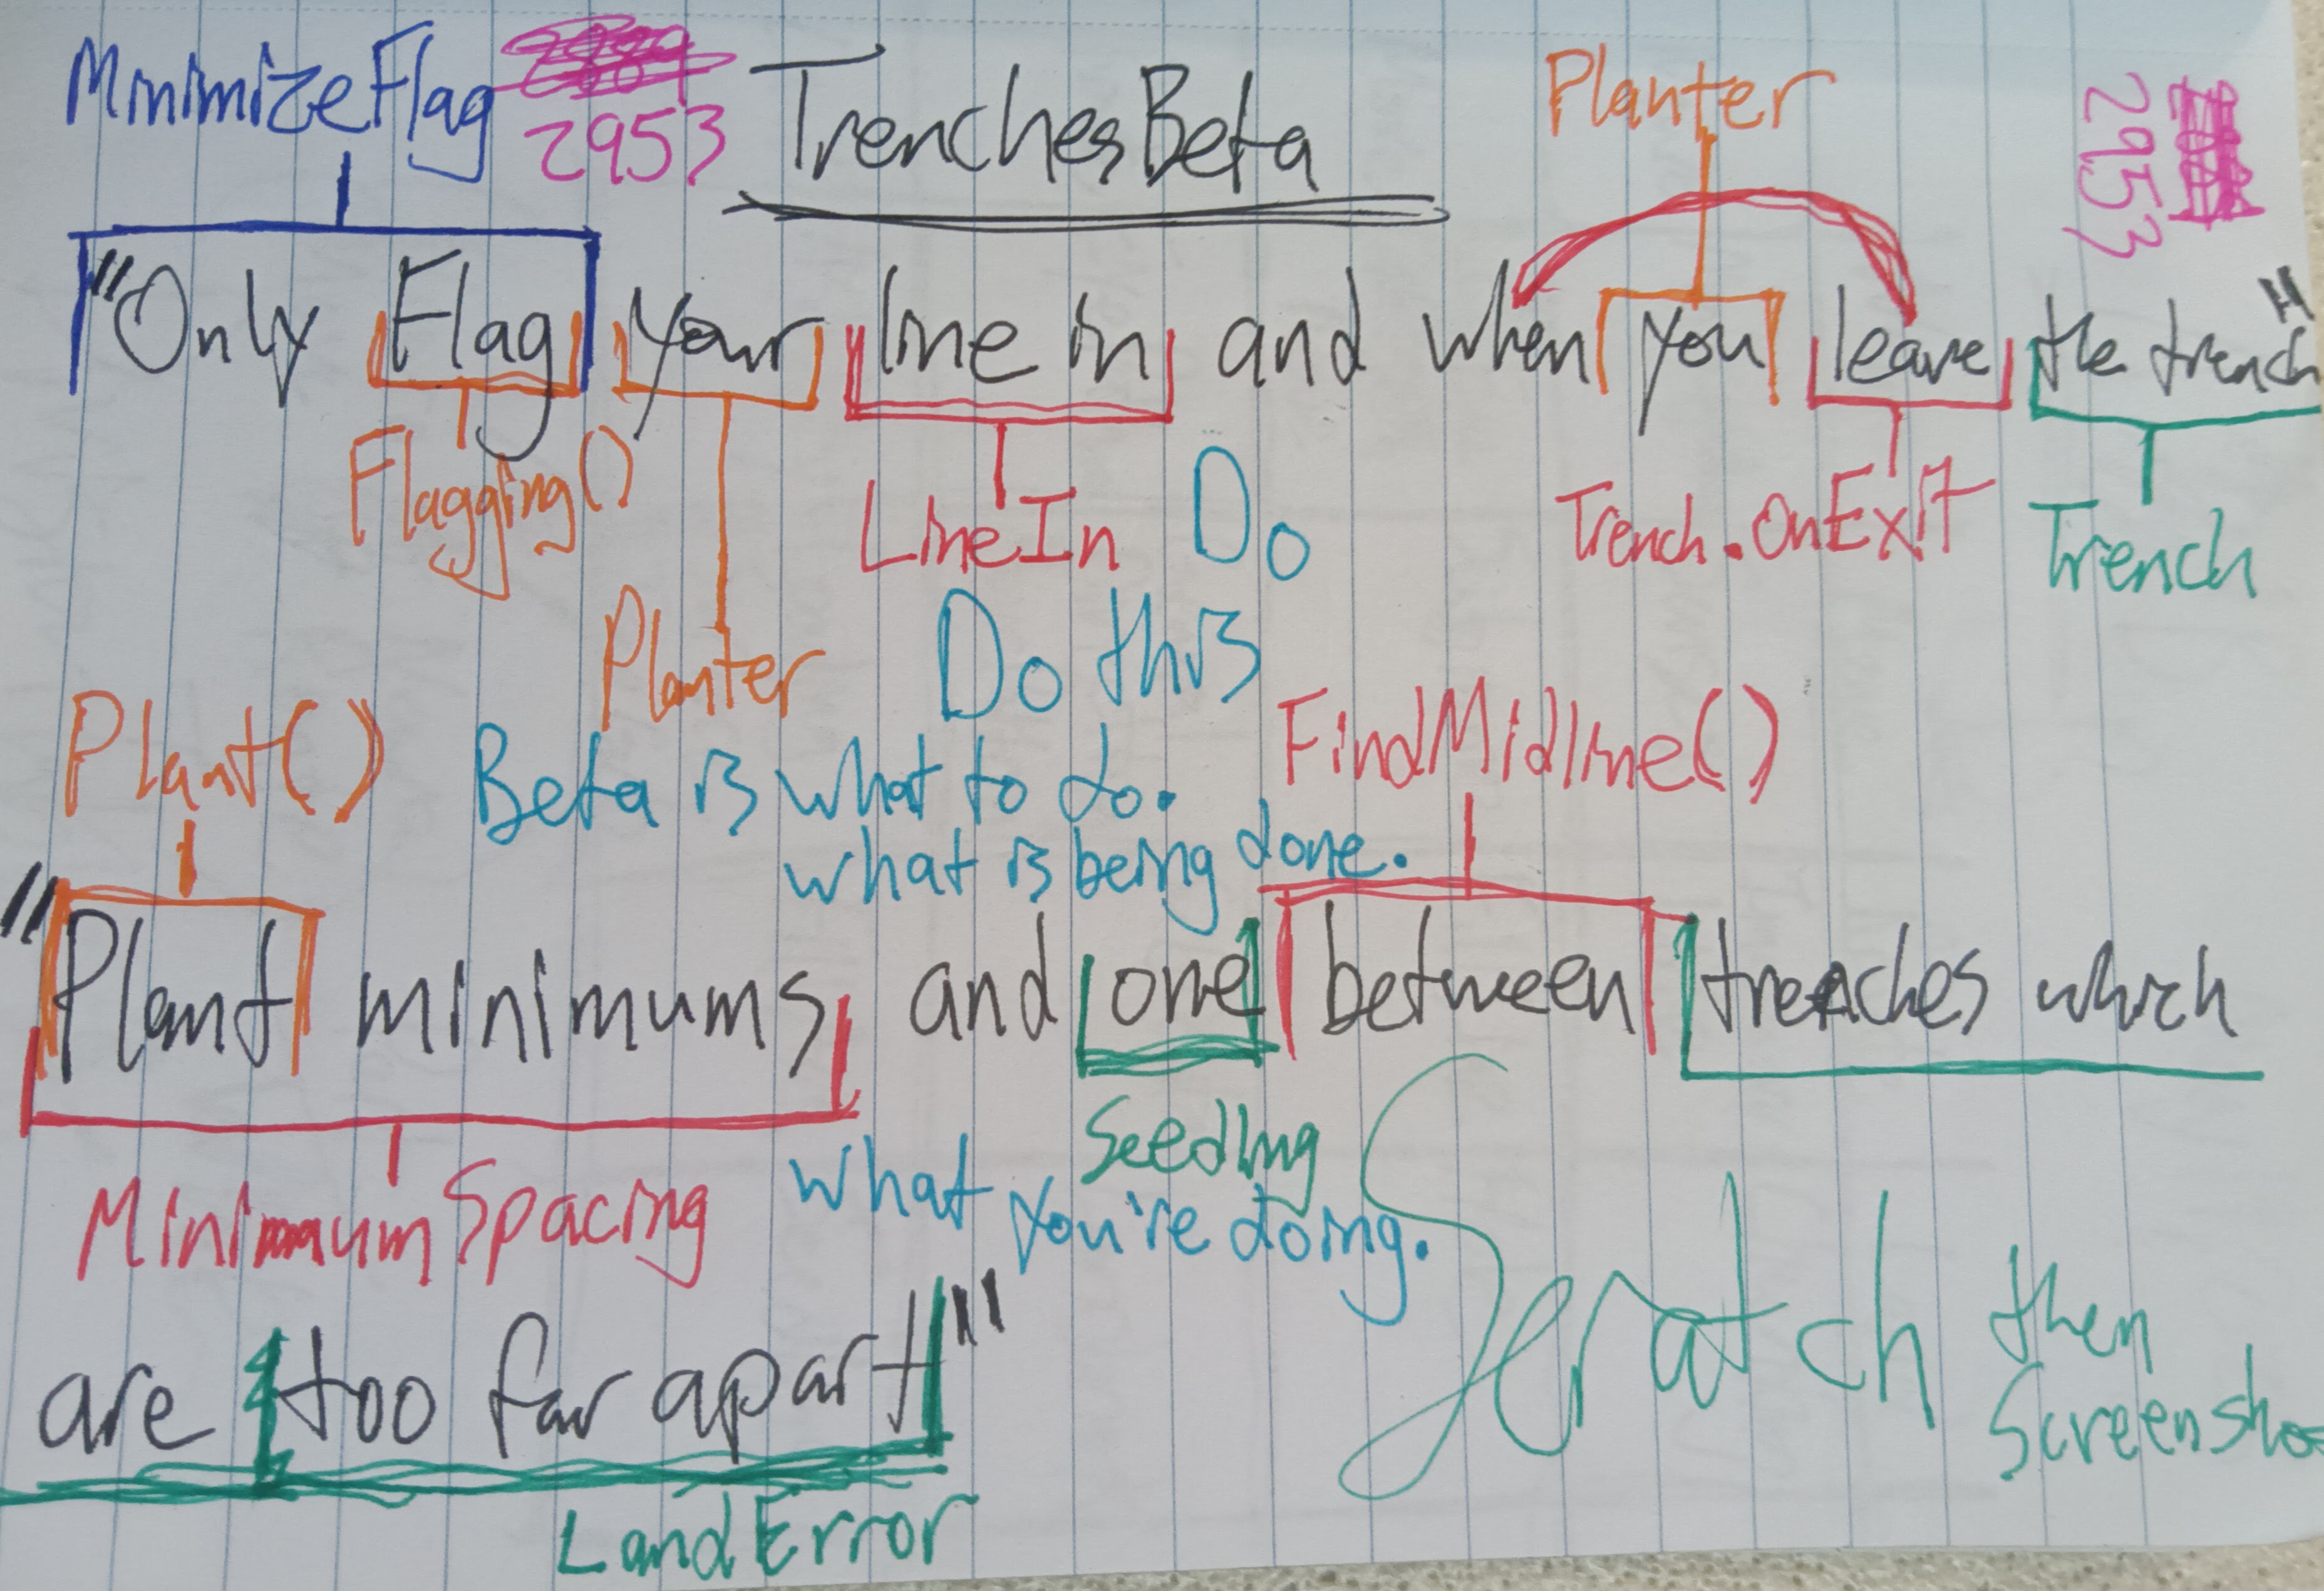 MinimizeFlag
2953
TrenchesBeta
Planter
2953
"Only Flag your line in and when you leave the trench"
Flagging()
LineIn
Do
Trench.OnExit
Trench
Planter
Do this
Plant()
Beta is what to do.
what is being done.
FindMidline()
"Plant minimums and one between trenches which
Seedling
MinimumSpacing
what you're doing.
are too far apart"
Scratch then
LandError